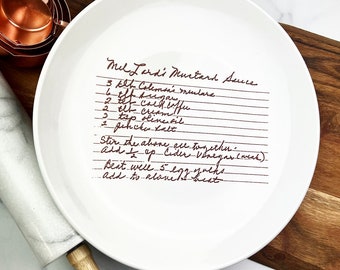 Mel Lard's Mustard Sauce
3 tbl Coleman's mustard
6 tbl sugar
2 tbl Cold Coffee
2 tbl Cream
2 tsp olive oil
2 pinches salt
Stir the above all together.
Add ½ cp Cider Vinegar (weak)
Beat well 5 egg yolks
Add to above & heat